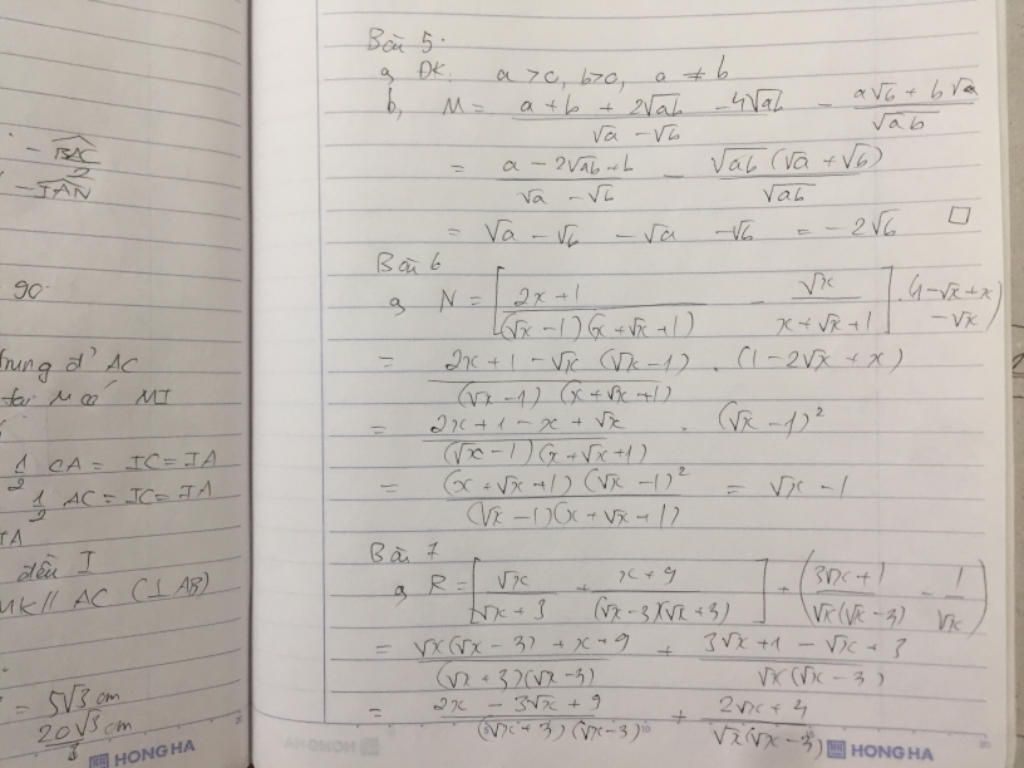 - BAC/2
- IAN
90°
trung đ' AC
MI
1/2 CA = IC = IA
1/2 AC = IC = IA
IA
đều I
MK // AC (⊥ AB)
= 5√3 cm
20√3 cm / 3
HONG HA
Bài 5.
a, ĐK: a > 0, b > 0, a ≠ b
b, M = (a + b + 2√ab - 4√ab)/(√a - √b) - (a√b + b√a)/√ab
= (a - 2√ab + b)/(√a - √b) - √ab(√a + √b)/√ab
= √a - √b - √a - √b = -2√b □
Bài 6
a, N = [(2x + 1)/((√x - 1)(x + √x + 1)) - √x/(x + √x + 1)] . (1 - √x + x - √x)
= (2x + 1 - √x(√x - 1))/((√x - 1)(x + √x + 1)) . (1 - 2√x + x)
= (2x + 1 - x + √x)/((√x - 1)(x + √x + 1)) . (√x - 1)²
= (x + √x + 1)(√x - 1)²/((√x - 1)(x + √x + 1)) = √x - 1
Bài 7
a, R = [√x/(√x + 3) + (x + 9)/((√x - 3)(√x + 3))] + ((3√x + 1)/(√x(√x - 3)) - 1/√x)
= (√x(√x - 3) + x + 9)/((√x + 3)(√x - 3)) + (3√x + 1 - √x + 3)/(√x(√x - 3))
= (2x - 3√x + 9)/((√x + 3)(√x - 3)) + (2√x + 4)/(√x(√x - 3))
HONG HA